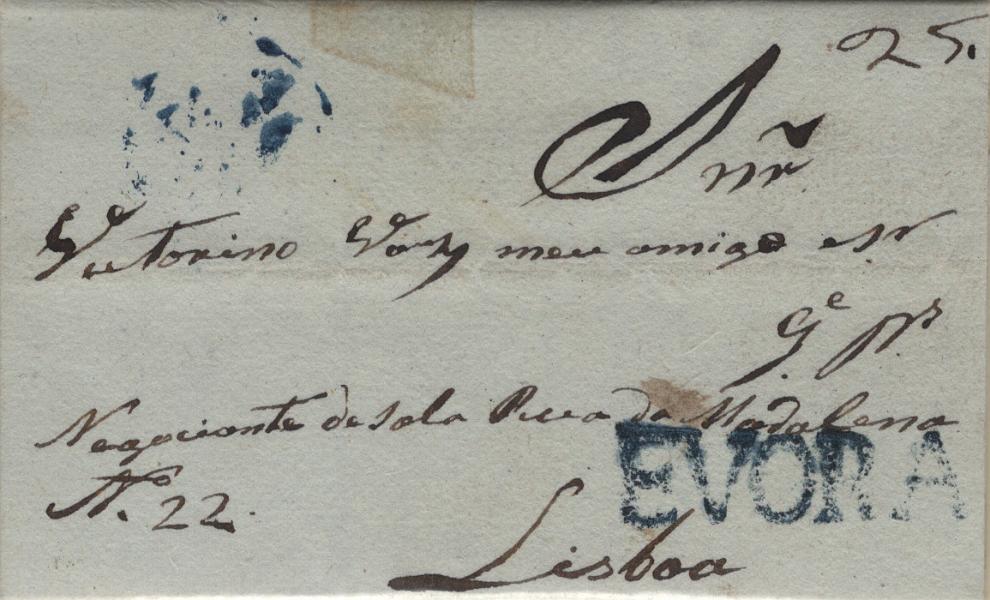 25.
Snr
Victorino Vaz meu amigo e Sr
Ge
Negociante de Sola Rua da Madalena
EVORA
No. 22.
Lisboa